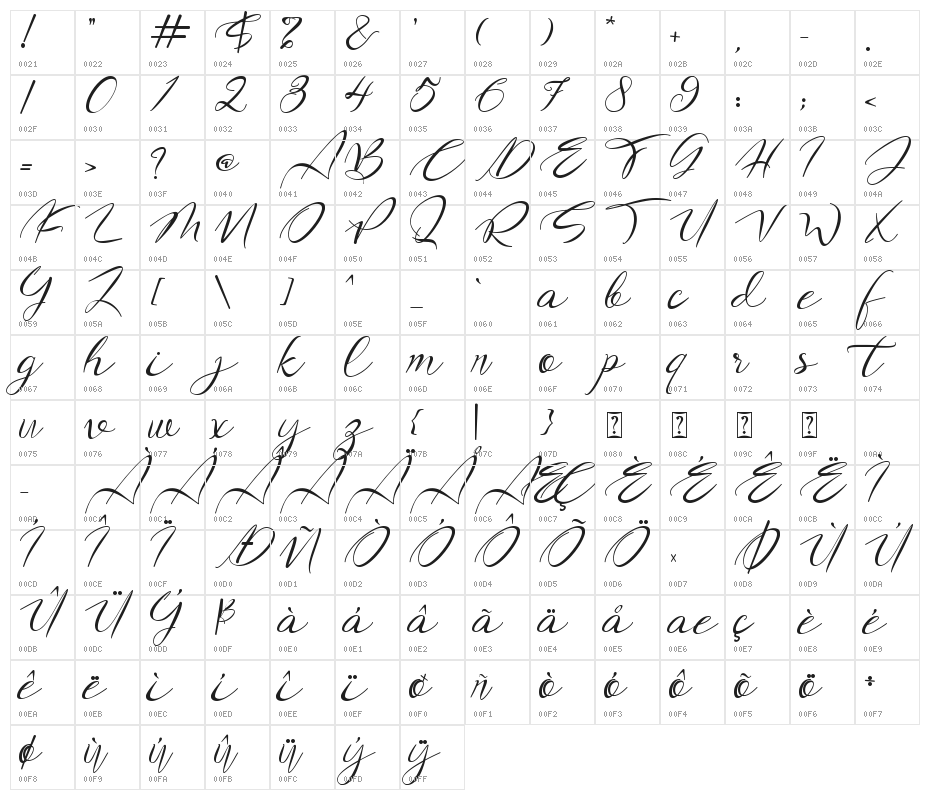 ! " # $ % & ' ( ) * + , - .
0021 0022 0023 0024 0025 0026 0027 0028 0029 002A 002B 002C 002D 002E
/ 0 1 2 3 4 5 6 7 8 9 : ; <
002F 0030 0031 0032 0033 0034 0035 0036 0037 0038 0039 003A 003B 003C
= > ? @ A B C D E F G H I J
003D 003E 003F 0040 0041 0042 0043 0044 0045 0046 0047 0048 0049 004A
K L M N O P Q R S T U V W X
004B 004C 004D 004E 004F 0050 0051 0052 0053 0054 0055 0056 0057 0058
Y Z [ \ ] ^ _ ` a b c d e f
0059 005A 005B 005C 005D 005E 005F 0060 0061 0062 0063 0064 0065 0066
g h i j k l m n o p q r s t
0067 0068 0069 006A 006B 006C 006D 006E 006F 0070 0071 0072 0073 0074
u v w x y z { | } ? ? ? ?
0075 0076 0077 0078 0079 007A 007B 007C 007D 0080 008C 009C 009F 00A0
- À Á Â Ã Ä Å Æ Ç È É Ê Ë Ì
00AD 00C0 00C1 00C2 00C3 00C4 00C5 00C6 00C7 00C8 00C9 00CA 00CB 00CC
Í Î Ï Ð Ñ Ò Ó Ô Õ Ö × Ø Ù Ú
00CD 00CE 00CF 00D0 00D1 00D2 00D3 00D4 00D5 00D6 00D7 00D8 00D9 00DA
Û Ü Ý ß à á â ã ä å æ ç è é
00DB 00DC 00DD 00DF 00E0 00E1 00E2 00E3 00E4 00E5 00E6 00E7 00E8 00E9
ê ë ì í î ï ð ñ ò ó ô õ ö ÷
00EA 00EB 00EC 00ED 00EE 00EF 00F0 00F1 00F2 00F3 00F4 00F5 00F6 00F7
ø ù ú û ü ý ÿ
00F8 00F9 00FA 00FB 00FC 00FD 00FF